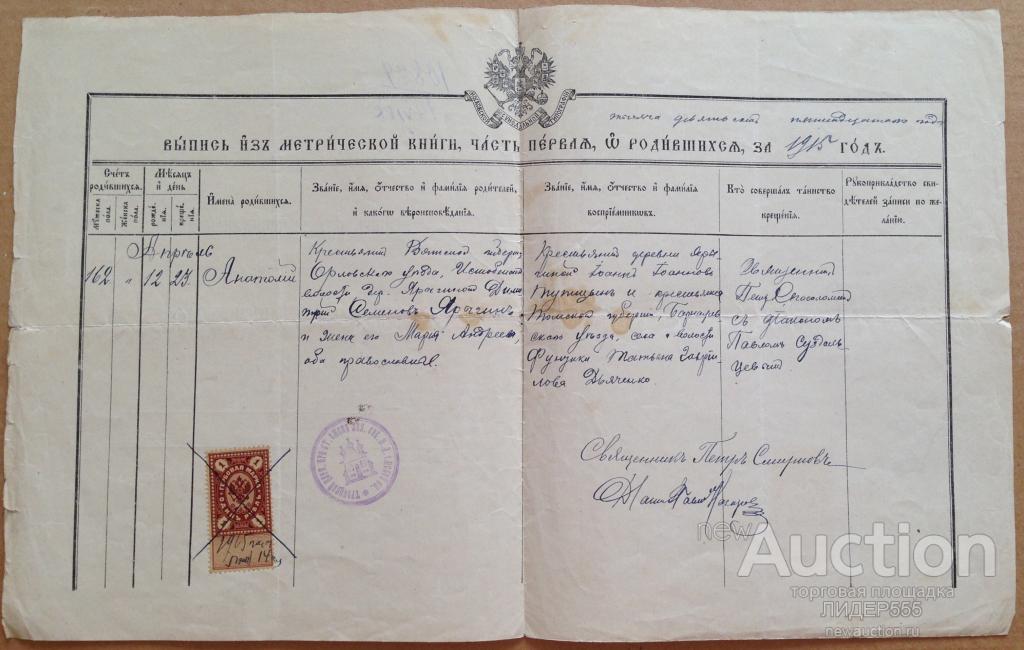 тысяча девятьсот пятнадцатаго года
ВЫПИСЬ ИЗЪ МЕТРИЧЕСКОЙ КНИГИ, ЧАСТЬ ПЕРВАЯ, Ѿ РОДИВШИХСЯ, ЗА 1915 ГОДЪ.
Счетъ родившихся.
Мѣсяцъ и день
Имена родившихся.
Званіе, имя, отчество и фамилія родителей,
и какого вѣроисповѣданія.
Званіе, имя, отчество и фамилія
воспріемниковъ.
Кто совершалъ таинство
крещенія.
Рукоприкладство сви-
дѣтелей записи по же-
ланію.
Мужеска пола.
Женска пола.
рожде-
нія.
креще-
нія.
Апрѣль
162. " 12 23. Анатолій
Крестьянинъ Вятской губерніи
Орловскаго уѣзда, Истобенской
волости дер. Ярыгиной Дими-
трій Семеновъ Ярыгинъ
и жена его Марія Андреева,
оба православные.
Крестьянинъ деревни Яры-
гиной Іоаннъ Іоанновъ
и крестьянка
Томской губерніи, Барнауль-
скаго уѣзда, села и волости
Татьяна Гаврі-
лова Дьяченко.
Священникъ
Петръ
съ діакономъ
Павломъ Суздаль-
цевымъ
Священникъ Петръ Смирновъ
1
1
1
1
1915 года
14
newAuction
торговая площадка
ЛИДЕР555
newauction.ru